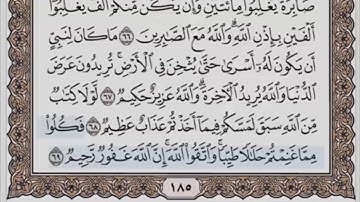 صَابِرَةٌ يَغْلِبُوا۟ مِا۟ئَتَيْنِ وَإِن يَكُن مِّنكُمْ أَلْفٌ يَغْلِبُوٓا۟
أَلْفَيْنِ بِإِذْنِ ٱللَّهِ وَٱللَّهُ مَعَ ٱلصَّٰبِرِينَ ٦٦ مَا كَانَ لِنَبِيٍّ
أَن يَكُونَ لَهُۥٓ أَسْرَىٰ حَتَّىٰ يُثْخِنَ فِى ٱلْأَرْضِ تُرِيدُونَ عَرَضَ
ٱلدُّنْيَا وَٱللَّهُ يُرِيدُ ٱلْأَخِرَةَ وَٱللَّهُ عَزِيزٌ حَكِيمٌ ٦٧ لَّوْلَا كِتَٰبٌ
مِّنَ ٱللَّهِ سَبَقَ لَمَسَّكُمْ فِيمَآ أَخَذْتُمْ عَذَابٌ عَظِيمٌ ٦٨ فَكُلُوا۟
مِمَّا غَنِمْتُمْ حَلَٰلًا طَيِّبًا وَٱتَّقُوا۟ ٱللَّهَ إِنَّ ٱللَّهَ غَفُورٌ رَّحِيمٌ ٦٩
١٨٥